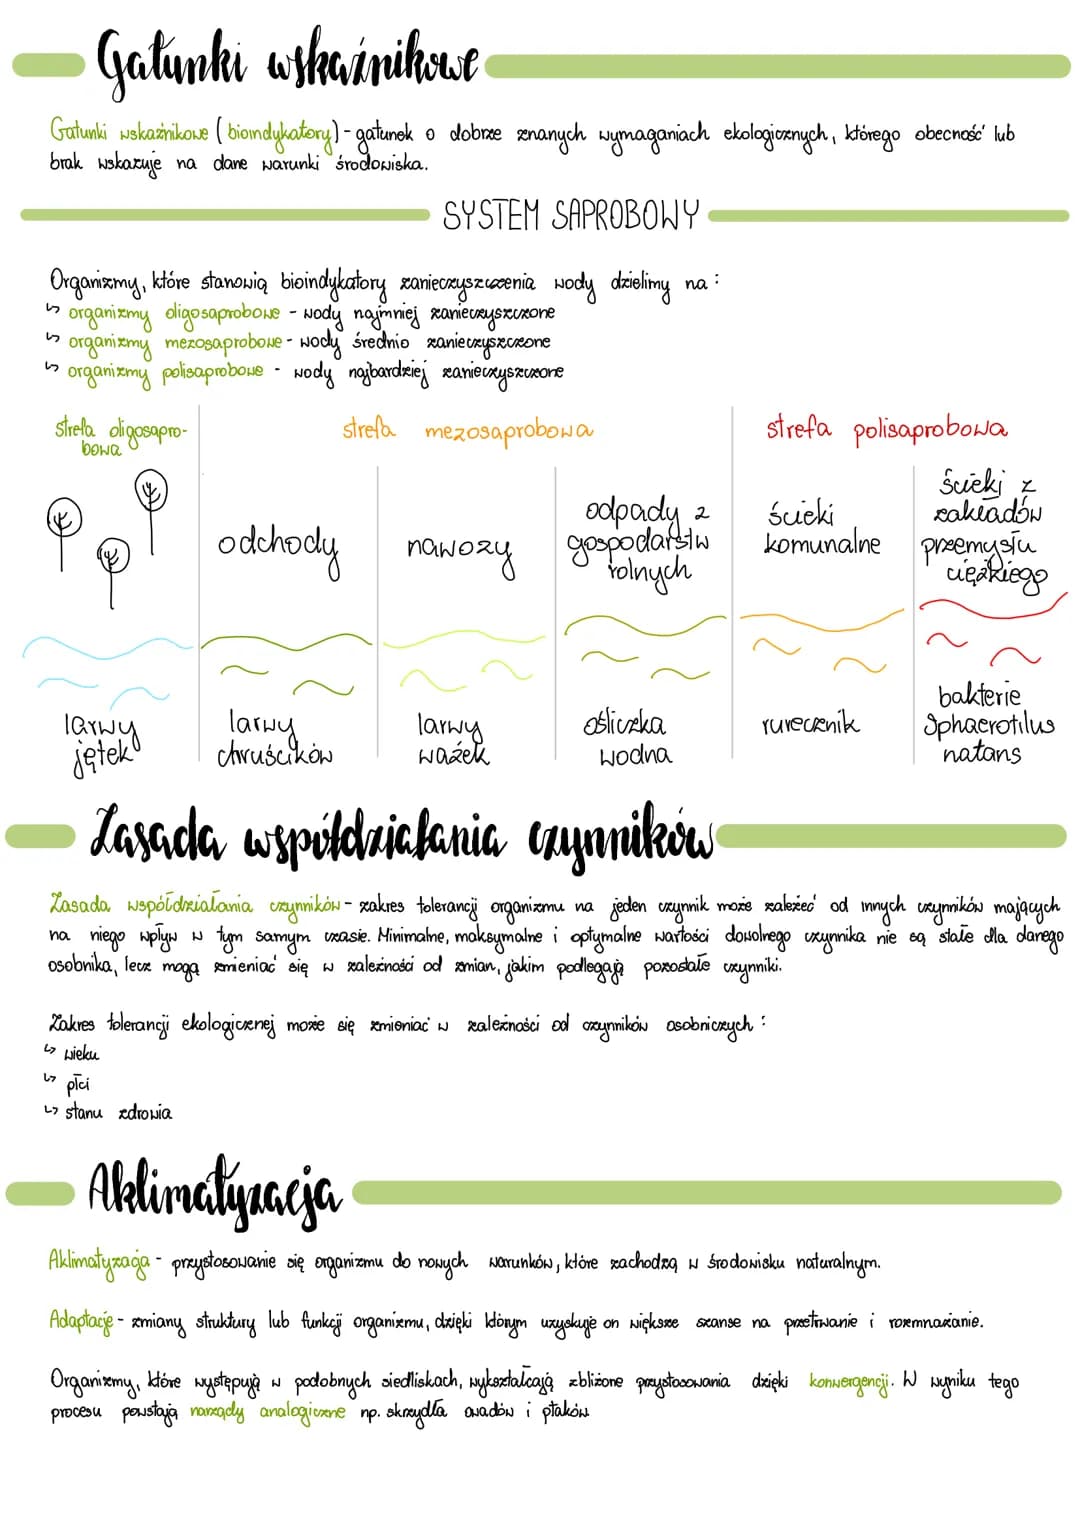 Gatunki wskaźnikowe
Gatunki wskaźnikowe (bioindykatory) - gatunek o dobrze znanych wymaganiach ekologicznych, którego obecność lub
brak wskazuje na dane warunki środowiska.
SYSTEM SAPROBOWY
Organizmy, które stanowią bioindykatory zanieczyszczenia wody dzielimy na :
↳ organizmy oligosaprobowe - wody najmniej zanieczyszczone
↳ organizmy mezosaprobowe - wody średnio zanieczyszczone
↳ organizmy polisaprobowe - wody najbardziej zanieczyszczone
strefa oligosapro-
bowa
strefa mezosaprobowa
strefa polisaprobowa
odchody
nawozy
odpady z
gospodarstw
rolnych
ścieki
komunalne
ścieki z
zakładów
przemysłu
ciężkiego
larwy
jętek
larwy
chruścików
larwy
ważek
ośliczka
wodna
rurecznik
bakterie
Sphaerotilus
natans
Zasada współdziałania czynników
Zasada współdziałania czynników - zakres tolerancji organizmu na jeden czynnik może zależeć od innych czynników mających
na niego wpływ w tym samym czasie. Minimalne, maksymalne i optymalne wartości dowolnego czynnika nie są stałe dla danego
osobnika, lecz mogą zmieniać się w zależności od zmian, jakim podlegają pozostałe czynniki.
Zakres tolerancji ekologicznej może się zmieniać w zależności od czynników osobniczych :
↳ wieku
↳ płci
↳ stanu zdrowia
Aklimatyzacja
Aklimatyzacja - przystosowanie się organizmu do nowych warunków, które zachodzą w środowisku naturalnym.
Adaptacje - zmiany struktury lub funkcji organizmu, dzięki którym uzyskuje on większe szanse na przetrwanie i rozmnażanie.
Organizmy, które występują w podobnych siedliskach, wykształcają zbliżone przystosowania dzięki konwergencji. W wyniku tego
procesu powstają narządy analogiczne np. skrzydła owadów i ptaków